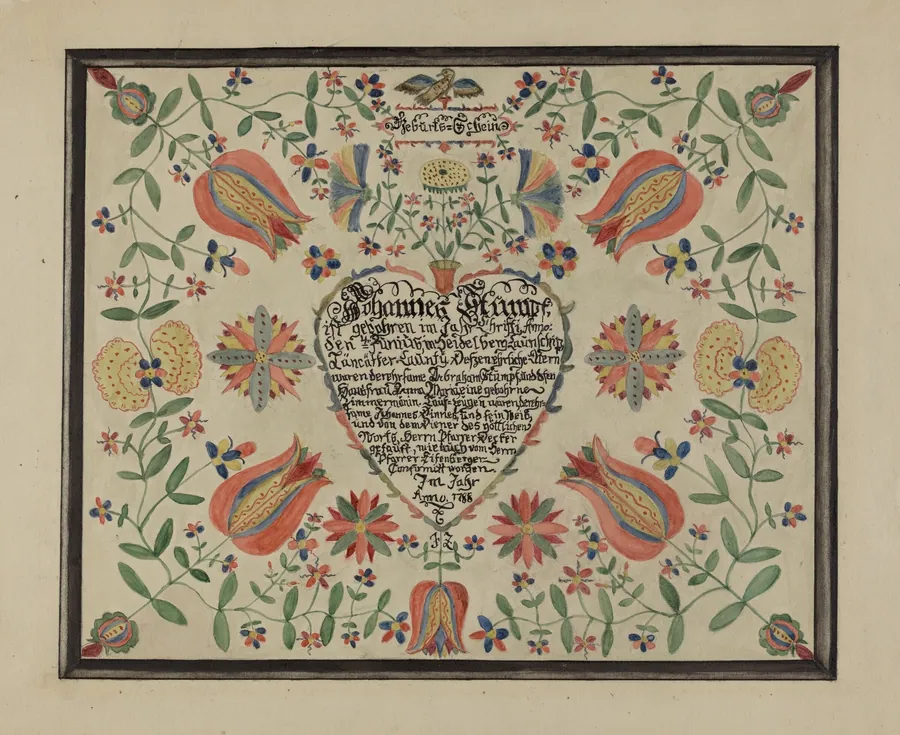 Geburts=Schein
Johannes Stumpf,
ist gebohren im Jahr Christi Anno:
den Junius in Heidelberg Taunschip
Läncaster Caunty, Deßen ehrliche Eltern
waren der ehrsame Abraham Stumpf, Und deßen
Hausfrau Anna Maria eine gebohrne
Zimmermänin. Tauf=zeugen waren der ehr=
same Johannes Und sein Weib,
und von dem Diener des göttlichen
Worts, Herrn Pfarrer
getauft, wie auch vom Herrn
Pfarrer
Confirmitt worden
Im Jahr
Anno, 1788